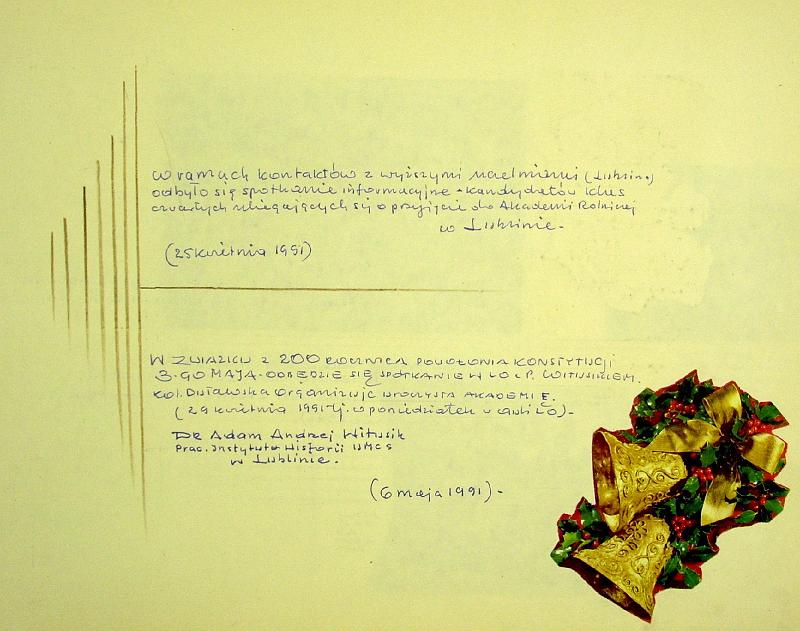 W ramach kontaktów z wyższymi uczelniami (Lublin)
odbyło się spotkanie informacyjne - kandydatów klas
czwartych ubiegających się o przyjęcie do Akademii Rolniczej
w Lublinie.
(25 kwietnia 1991)
W ZWIĄZKU Z 200 ROCZNICĄ KONSTYTUCJI
3-GO MAJA - ODBĘDZIE SIĘ SPOTKANIE W LO z P. WITUSIKIEM.
Kol. organizuje uroczystą AKADEMIĘ.
(29 kwietnia 1991 r. w poniedziałek w auli LO) -
Dr Adam Andrzej Witusik
Prac. Instytutu Historii UMCS
w Lublinie.
(6 maja 1991). -